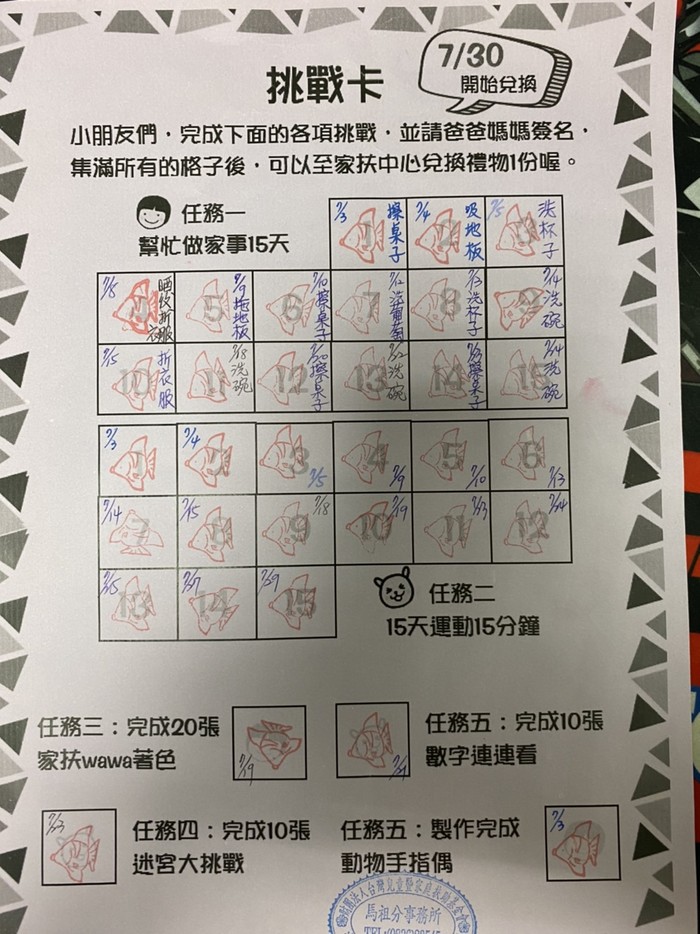 7/30
開始兌換
挑戰卡
小朋友們，完成下面的各項挑戰，並請爸爸媽媽簽名，
集滿所有的格子後，可以至家扶中心兌換禮物1份喔。
任務一
幫忙做家事15天
7/3 1 擦桌子
7/4 2 吸地板
7/5 3 洗杯子
7/8 4 晒收折衣服
7/9 5 拖地板
7/10 6 擦桌子
7/12 7 洗葡萄
7/13 8 洗杯子
7/14 9 洗碗
7/15 10 折衣服
7/18 11 洗碗
7/20 12 擦桌子
7/22 13 洗碗
7/23 14 擦桌子
7/24 15 洗碗
7/3 1
7/4 2
3 7/5
4 7/9
5 7/10
6 7/13
7/14 7
7/15 8
9 7/18
10 7/19
11
12 7/24
7/25 13
7/27 14
7/29 15
任務二
15天運動15分鐘
任務三：完成20張
家扶wawa著色
7/19
任務五：完成10張
數字連連看
任務四：完成10張
迷宮大挑戰
任務五：製作完成
動物手指偶
7/3
財團法人台灣兒童暨家庭扶助基金會
馬祖分事務所